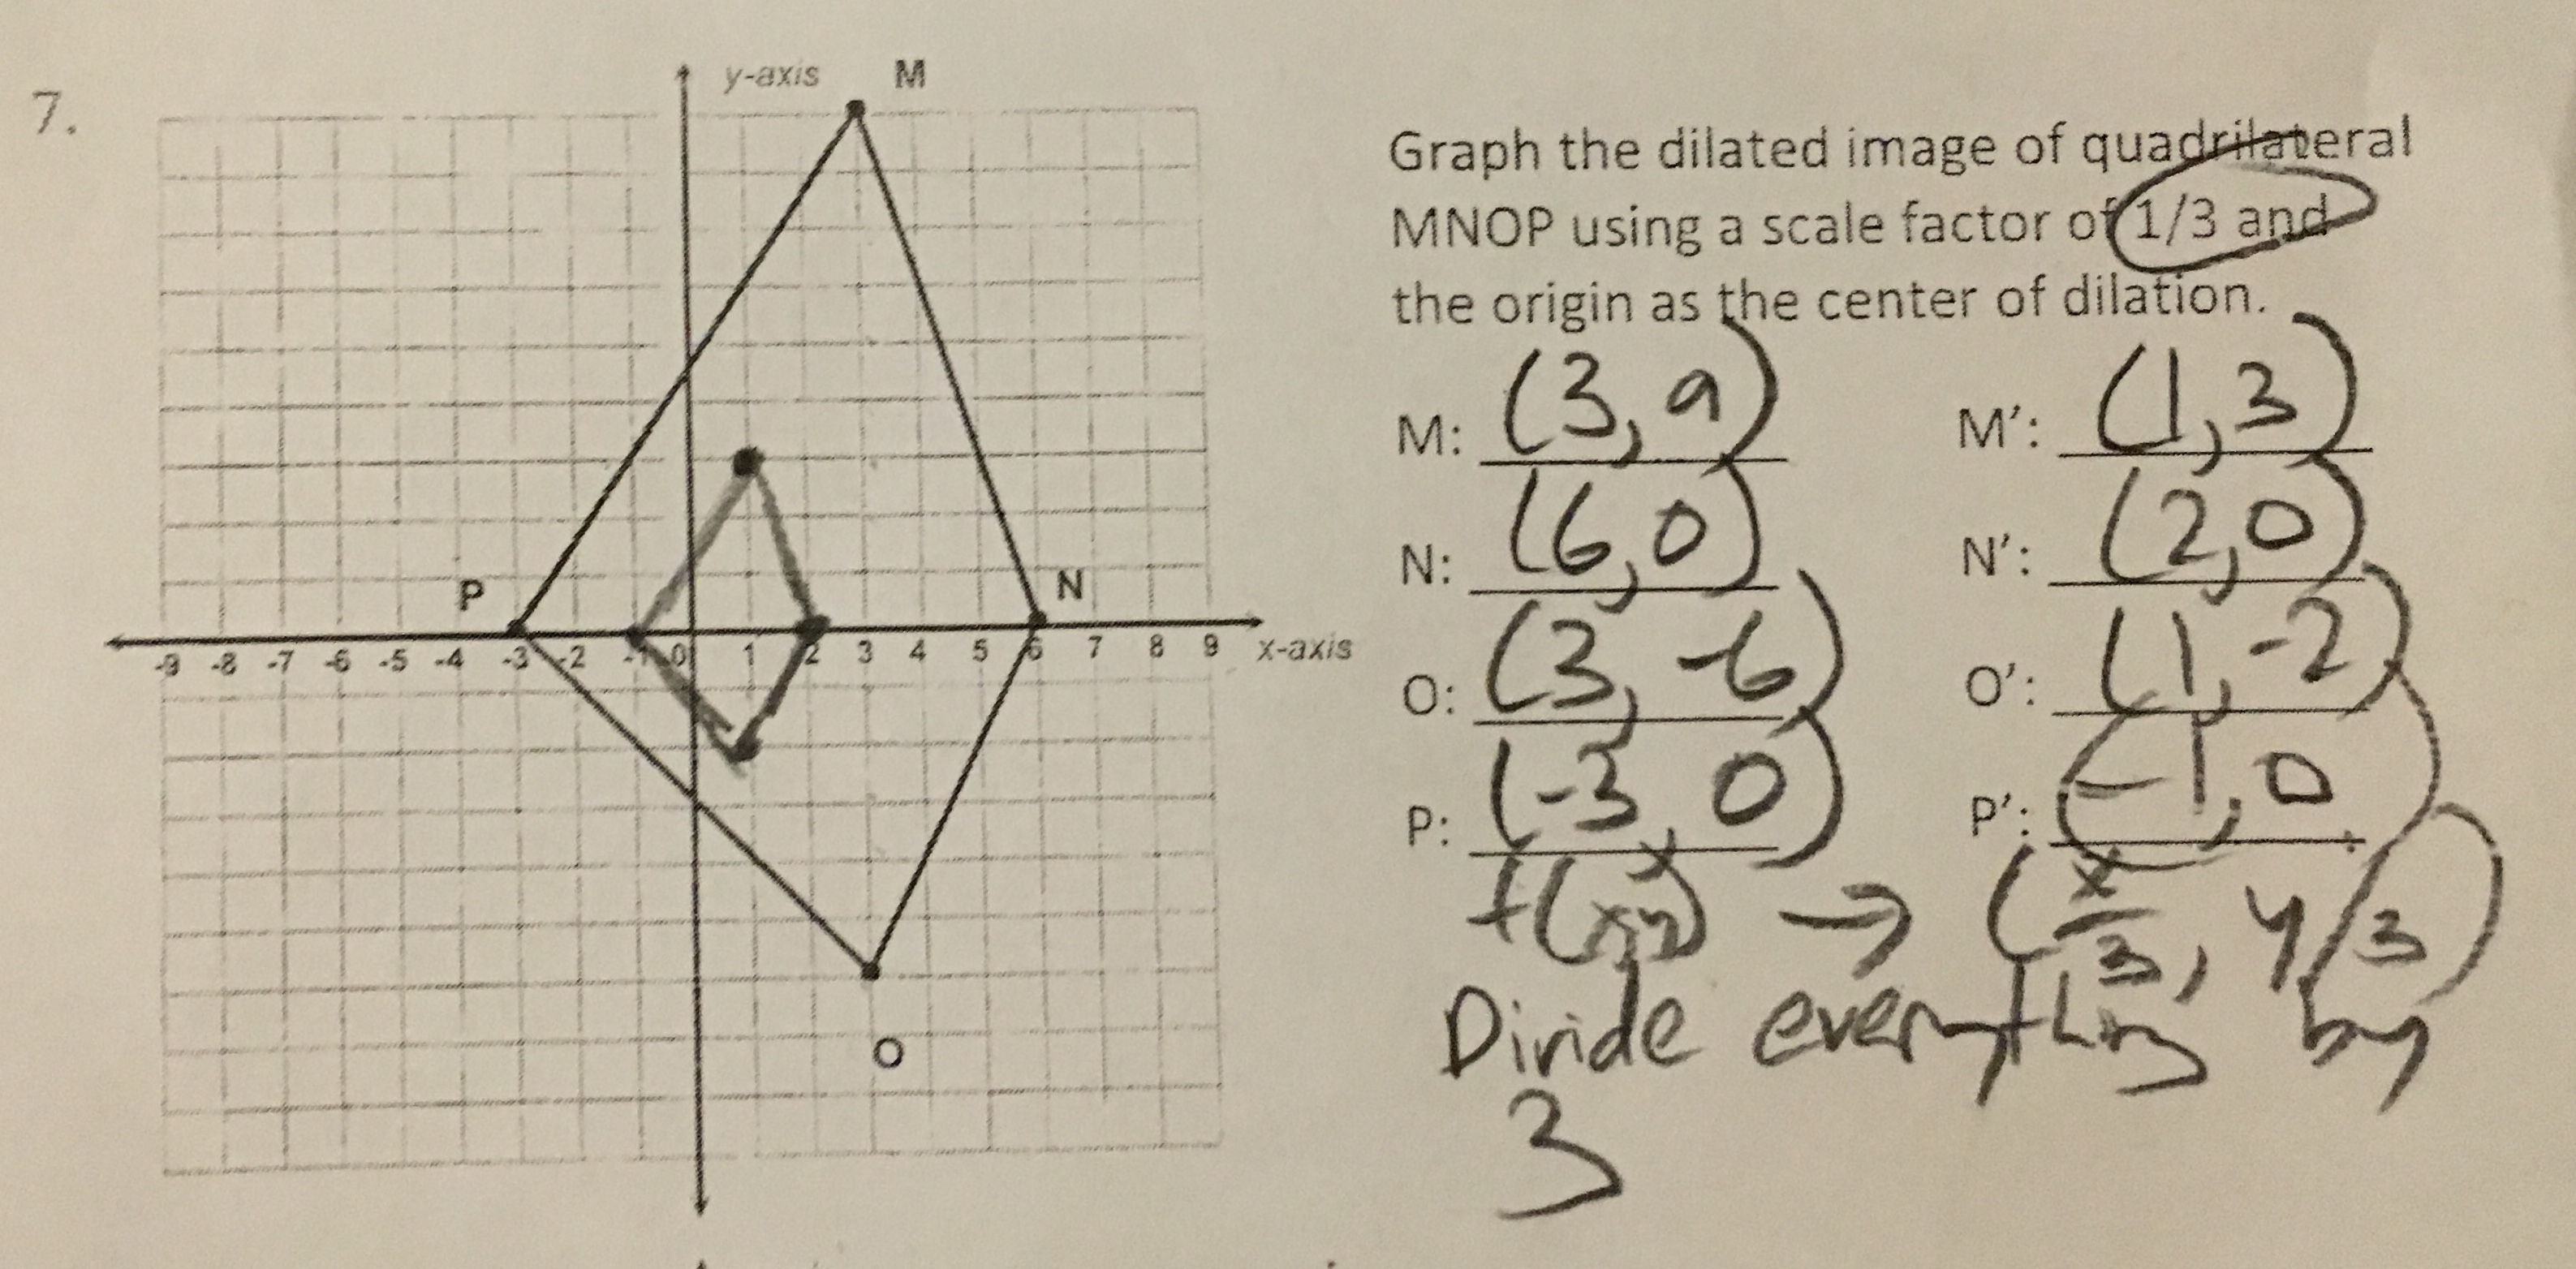 7.
y-axis
M
P
N
-9 -8 -7 -6 -5 -4 -3 -2 -1 0 1 2 3 4 5 6 7 8 9 x-axis
O
Graph the dilated image of quadrilateral
MNOP using a scale factor of 1/3 and
the origin as the center of dilation.
M: (3, 9) M': (1, 3)
N: (6, 0) N': (2, 0)
O: (3, -6) O': (1, -2)
P: (-3, 0) P': (-1, 0)
f(x,y) → (x/3, y/3)
Divide everything by
3